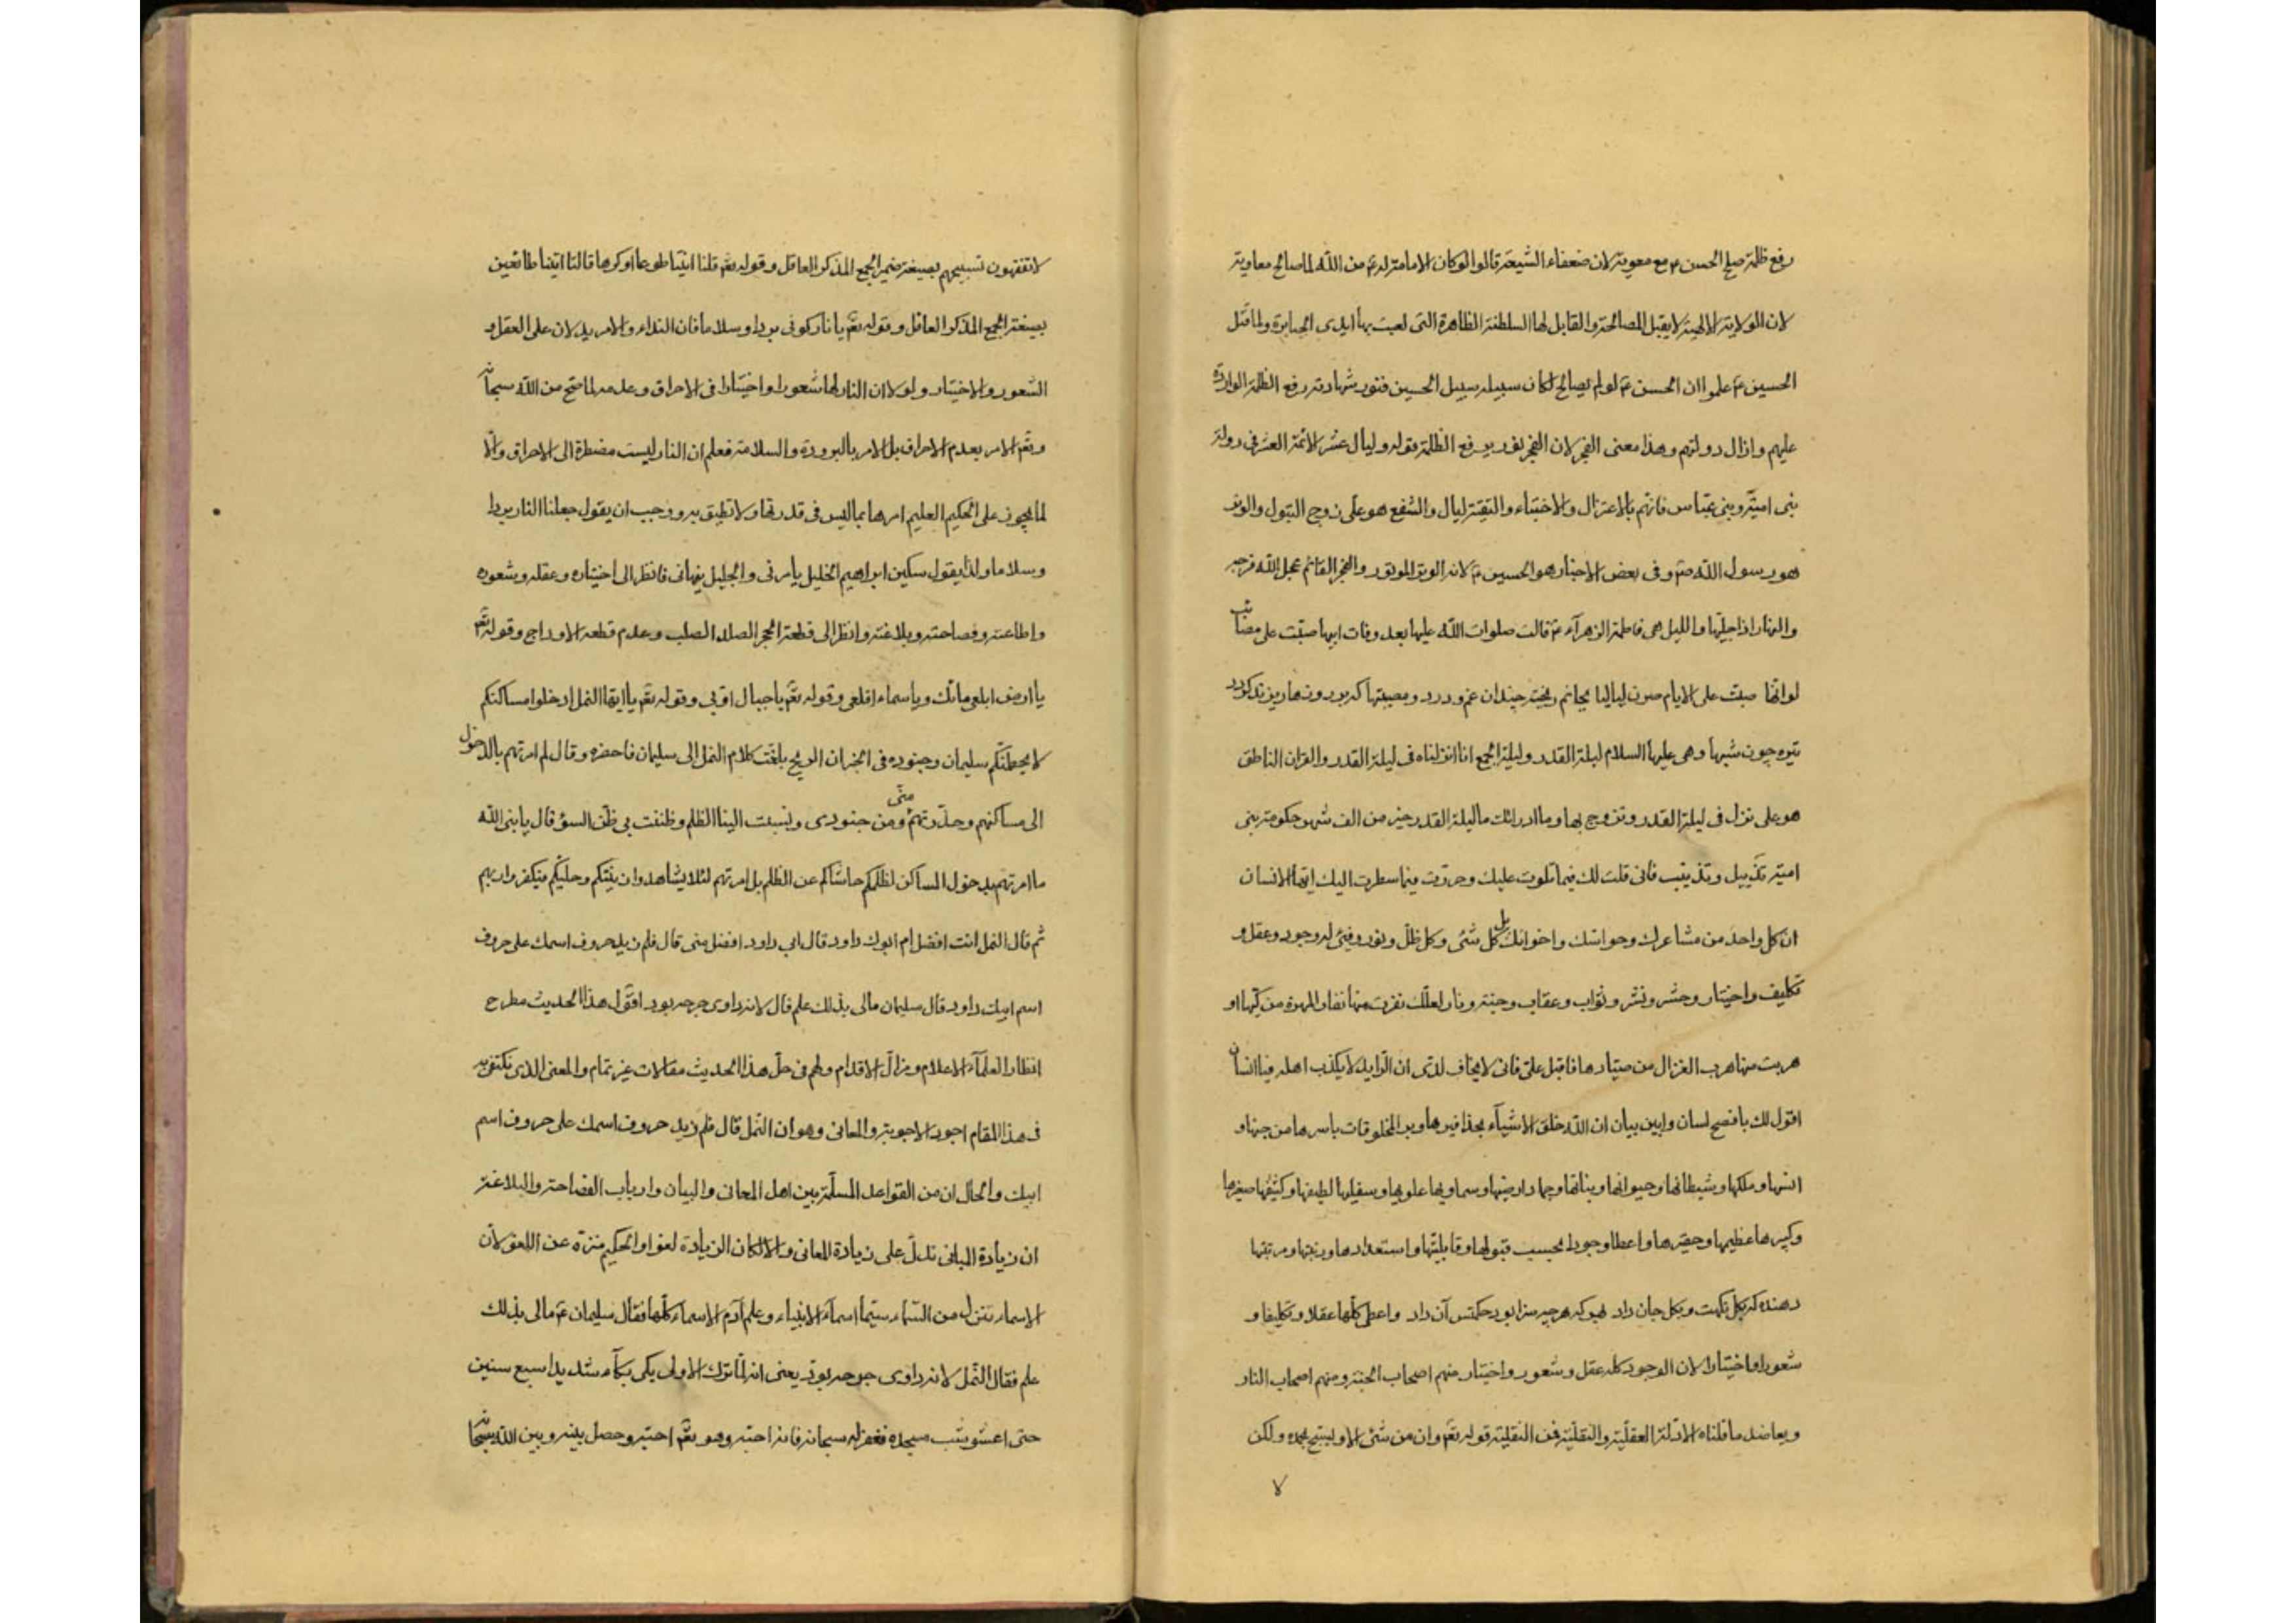 رفع ظلمة صلح الحسن ع مع معوية لان ضعفاء الشيعة قالوا لو كان الامامة له ع من الله لما صالح معاوية
لان الولاية الالهية لا يقبل المصالحة والقابل لها السلطنة الظاهرة التى لعبت بها ايدى الجبابرة ولما قتل
الحسين ع علموا ان الحسن ع لو لم يصالح لكان سبيله سبيل الحسين فنور شهادته رفع الظلمة الواردة
عليهم وازال دولتهم وهذا معنى الفجر لان الفجر نور يرفع الظلمة قوله وليال عشر الائمة العشر فى دولة
بنى امية وبنى عباس فانهم بالاعتزال والاختباء والتقية ليال والشفع هو على زوج البتول والوتر
هو رسول الله ص وفى بعض الاخبار هو الحسين ع لانه الوتر الموتور والفجر القائم عجل الله فرجه
والنهار اذا جليها والليل هى فاطمة الزهرآء ع قالت صلوات الله عليها بعد وفات ابيها صبت على مصائب
لو انها صبت على الايام صرن لياليا بجانم ريخت چندان غم و درد و مصيبتها كه بر روزها ريزند گردد
تيره چون شبها وهى عليها السلام ليلة القدر وليلة الجمع انا انزلناه فى ليلة القدر والقران الناطق
هو على نزل فى ليلة القدر وتزوج بها وما ادرائك ما ليلة القدر خير من الف شهر حكومة بنى
امية تذييل وتذنيب فانى قلت لك فيما تلوت عليك وحررت فيما سطرت اليك ايها الانسان
ان كل واحد من مشاعرك وحواسك واخوانك بل كل شئ وكل ظل ونور وفئ له وجود وعقل و
تكليف واختيار وحشر ونشر وثواب وعقاب وجنة ونار لعلك نفرت منها نفار المهرة من كيها او
هربت منها هرب الغزال من صيادها فاقبل على فانى لا يخاف لدى ان الرايد لا يكذب اهله فيا انسان
اقول لك بافصح لسان وابين بيان ان الله خلق الاشيآء بحذافيرها وبرا المخلوقات باسرها من جنها و
انسها وملكها وشيطانها وحيوانها ونباتها وجمادارضيها وسماويها علويها وسفليها لطيفها وكثيفها صغيرها
وكبيرها عظيمها وحقيرها واعطا وجودا بحسب قبولها وقابليتها واستعدادها ورتبتها ومرتبتها
دهنده كه بگل نكهت و بگل جان داد بهر كه هر چه سزا بود حكمتش آن داد واعطى كلها عقلا وتكليفا و
شعورا واختيارا لان الوجود كله عقل وشعور واختيار منهم اصحاب الجنة ومنهم اصحاب النار
ويعاضد ما قلناه الادلة العقلية والنقلية فمن النقلية قوله تعم وان من شئ الا ويسبح بحمده ولكن
لا
لا تفقهون تسبيحهم بصيغة ضمير الجمع المذكر العاقل وقوله تعم قلنا ائتيا طوعا او كرها قالتا اتينا طائعين
بصيغة الجمع المذكر العاقل وقوله تعم يا نار كونى بردا وسلاما فان النداء والامر يدلان على العقل و
الشعور والاختيار ولو لا ان النار لها شعورا واختيارا فى الاحراق وعدمه لما صح من الله سبحانه
وتعم الامر بعدم الاحراق بل الامر بالبرودة والسلامة فعلم ان النار ليست مضطرة الى الاحراق والا
لما يجوز على الحكيم العليم امرها بما ليس فى قدرتها ولا تطيق به ووجب ان يقول جعلنا النار بردا
وسلاما ولذا يقول سكين ابراهيم الخليل يامرنى والجليل ينهانى فانظر الى اختياره وعقله وشعوره
واطاعته وفصاحته وبلاغته وانظر الى قطعة الحجر الصلد الصلب وعدم قطعه الاوداج وقوله تعم
يا ارض ابلعى مائك ويا سماء اقلعى وقوله تعم يا جبال اوبى وقوله تعم يا ايها النمل ادخلوا مساكنكم
لا يحطمنكم سليمان وجنوده فى الخبر ان الريح بلغت كلام النمل الى سليمان فاحضره وقال لم امرتهم بالدخول
الى مساكنهم وحذرتهم منى ومن جنودى ونسبت الينا الظلم وظننت بى ظن السوء قال يا بنى الله
ما امرتهم بدخول المساكن لظلمكم حاشاكم عن الظلم بل امرتهم لئلا يشاهدوا زينتكم وحليكم فيكفروا بربهم
ثم قال النمل انت افضل ام ابوك داود قال ابى داود افضل منى قال فلم زيد حروف اسمك على حروف
اسم ابيك داود قال سليمان مالى بذلك علم قال لانه داوى جرحه بود اقول هذا الحديث مطرح
انظار العلمآء الاعلام ومزال الاقدام ولهم فى حل هذا الحديث مقالات غير تمام والمعنى الذى نكتفى به
فى هذا المقام اجود الاجوبة والمعانى وهو ان النمل قال فلم زيد حروف اسمك على حروف اسم
ابيك والحال ان من القواعد المسلمة بين اهل المعانى والبيان وارباب الفصاحة والبلاغة
ان زيادة المبانى تدل على زيادة المعانى والا لكان الزيادة لغوا والحكيم منزه عن اللغو لان
الاسماء تنزل من السماء سيما اسمآء الانبياء وعلم آدم الاسمآء كلها فقال سليمان ع مالى بذلك
علم فقال النمل لانه داوى جرحه بود يعنى انه لما ترك الاولى بكى بكآء شديدا سبع سنين
حتى اعشوشب مسجده فغفر له سبحانه فانه احبه وهو تعم احبه وحصل بينه وبين الله سبحانه